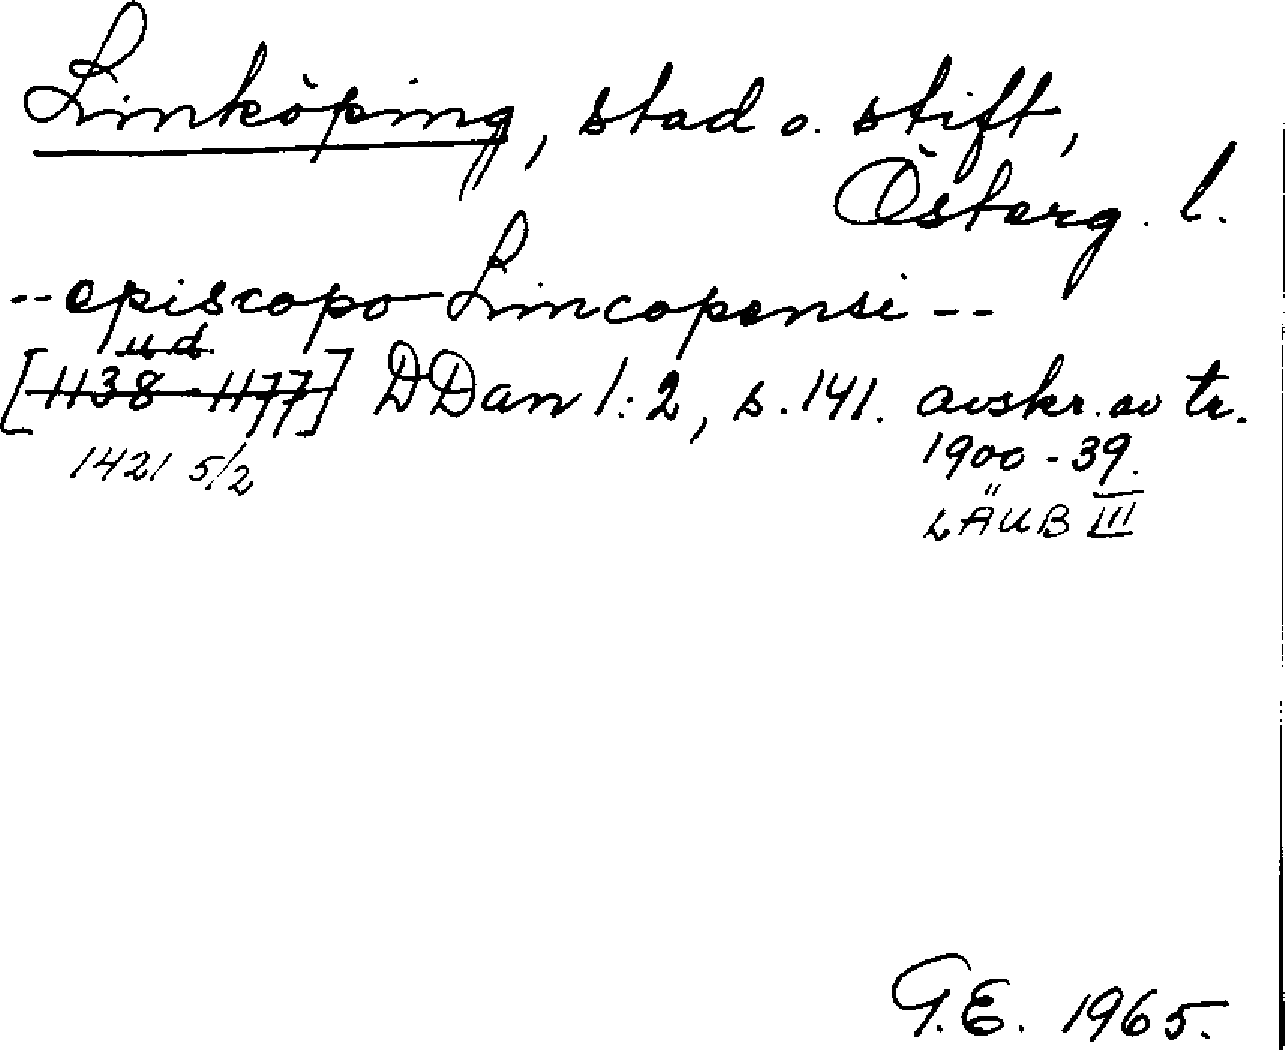 Linköping, stad o. stift,
Österg. l.
-- episcopo Lincopensi --
u.d.
[1138-1177] DDan 1:2, s. 141. avskr. av tr.
1421 5/2
1900-39.
LÄUB III
G.E. 1965.